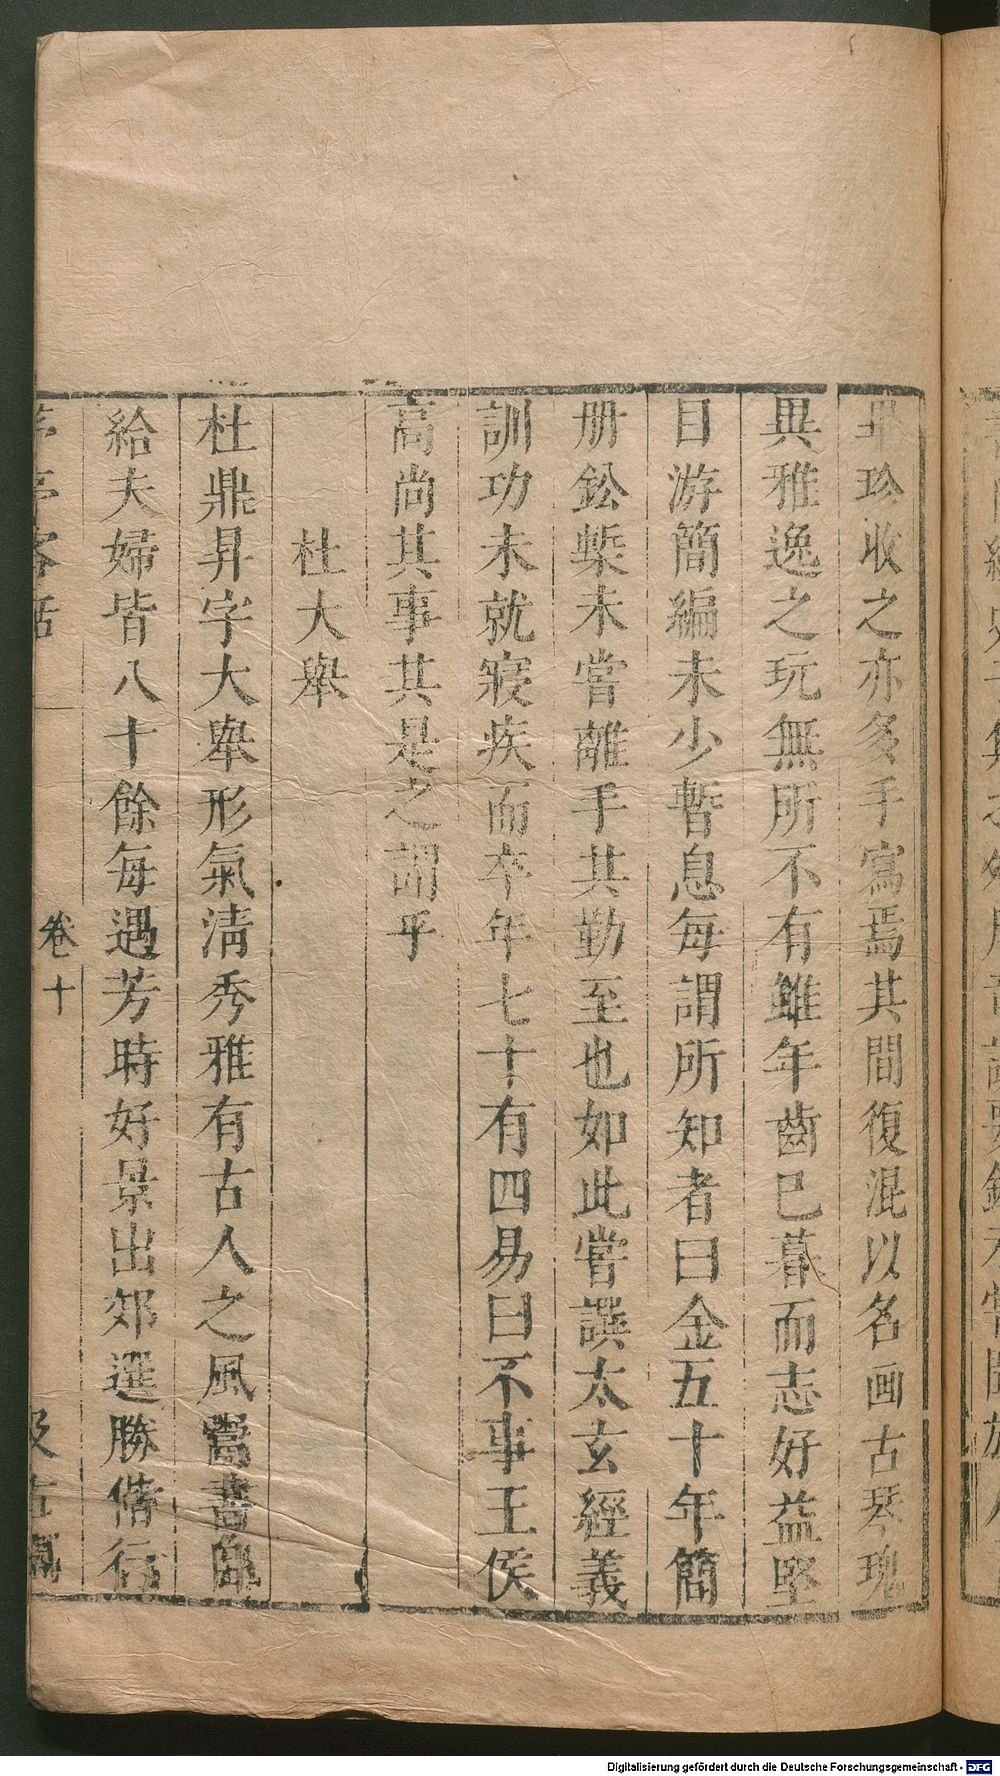 畢珍收之亦多手寫焉其間復混以名画古琴瑰
異雅逸之玩無所不有雖年齒已暮而志好益堅
目游簡編未少暫息每謂所知者曰金五十年簡
册鈆槧未嘗離手其勤至也如此嘗譔太玄經義
訓功未就寢疾而卒年七十有四易曰不事王侯
高尚其事其是之謂乎
杜大舉
杜鼎昇字大舉形氣清秀雅有古人之風鬻書自
給夫婦皆八十餘每遇芳時好景出郊選勝偕行
茅亭客話
卷十
汲古閣
Digitalisierung gefördert durch die Deutsche Forschungsgemeinschaft - DFG